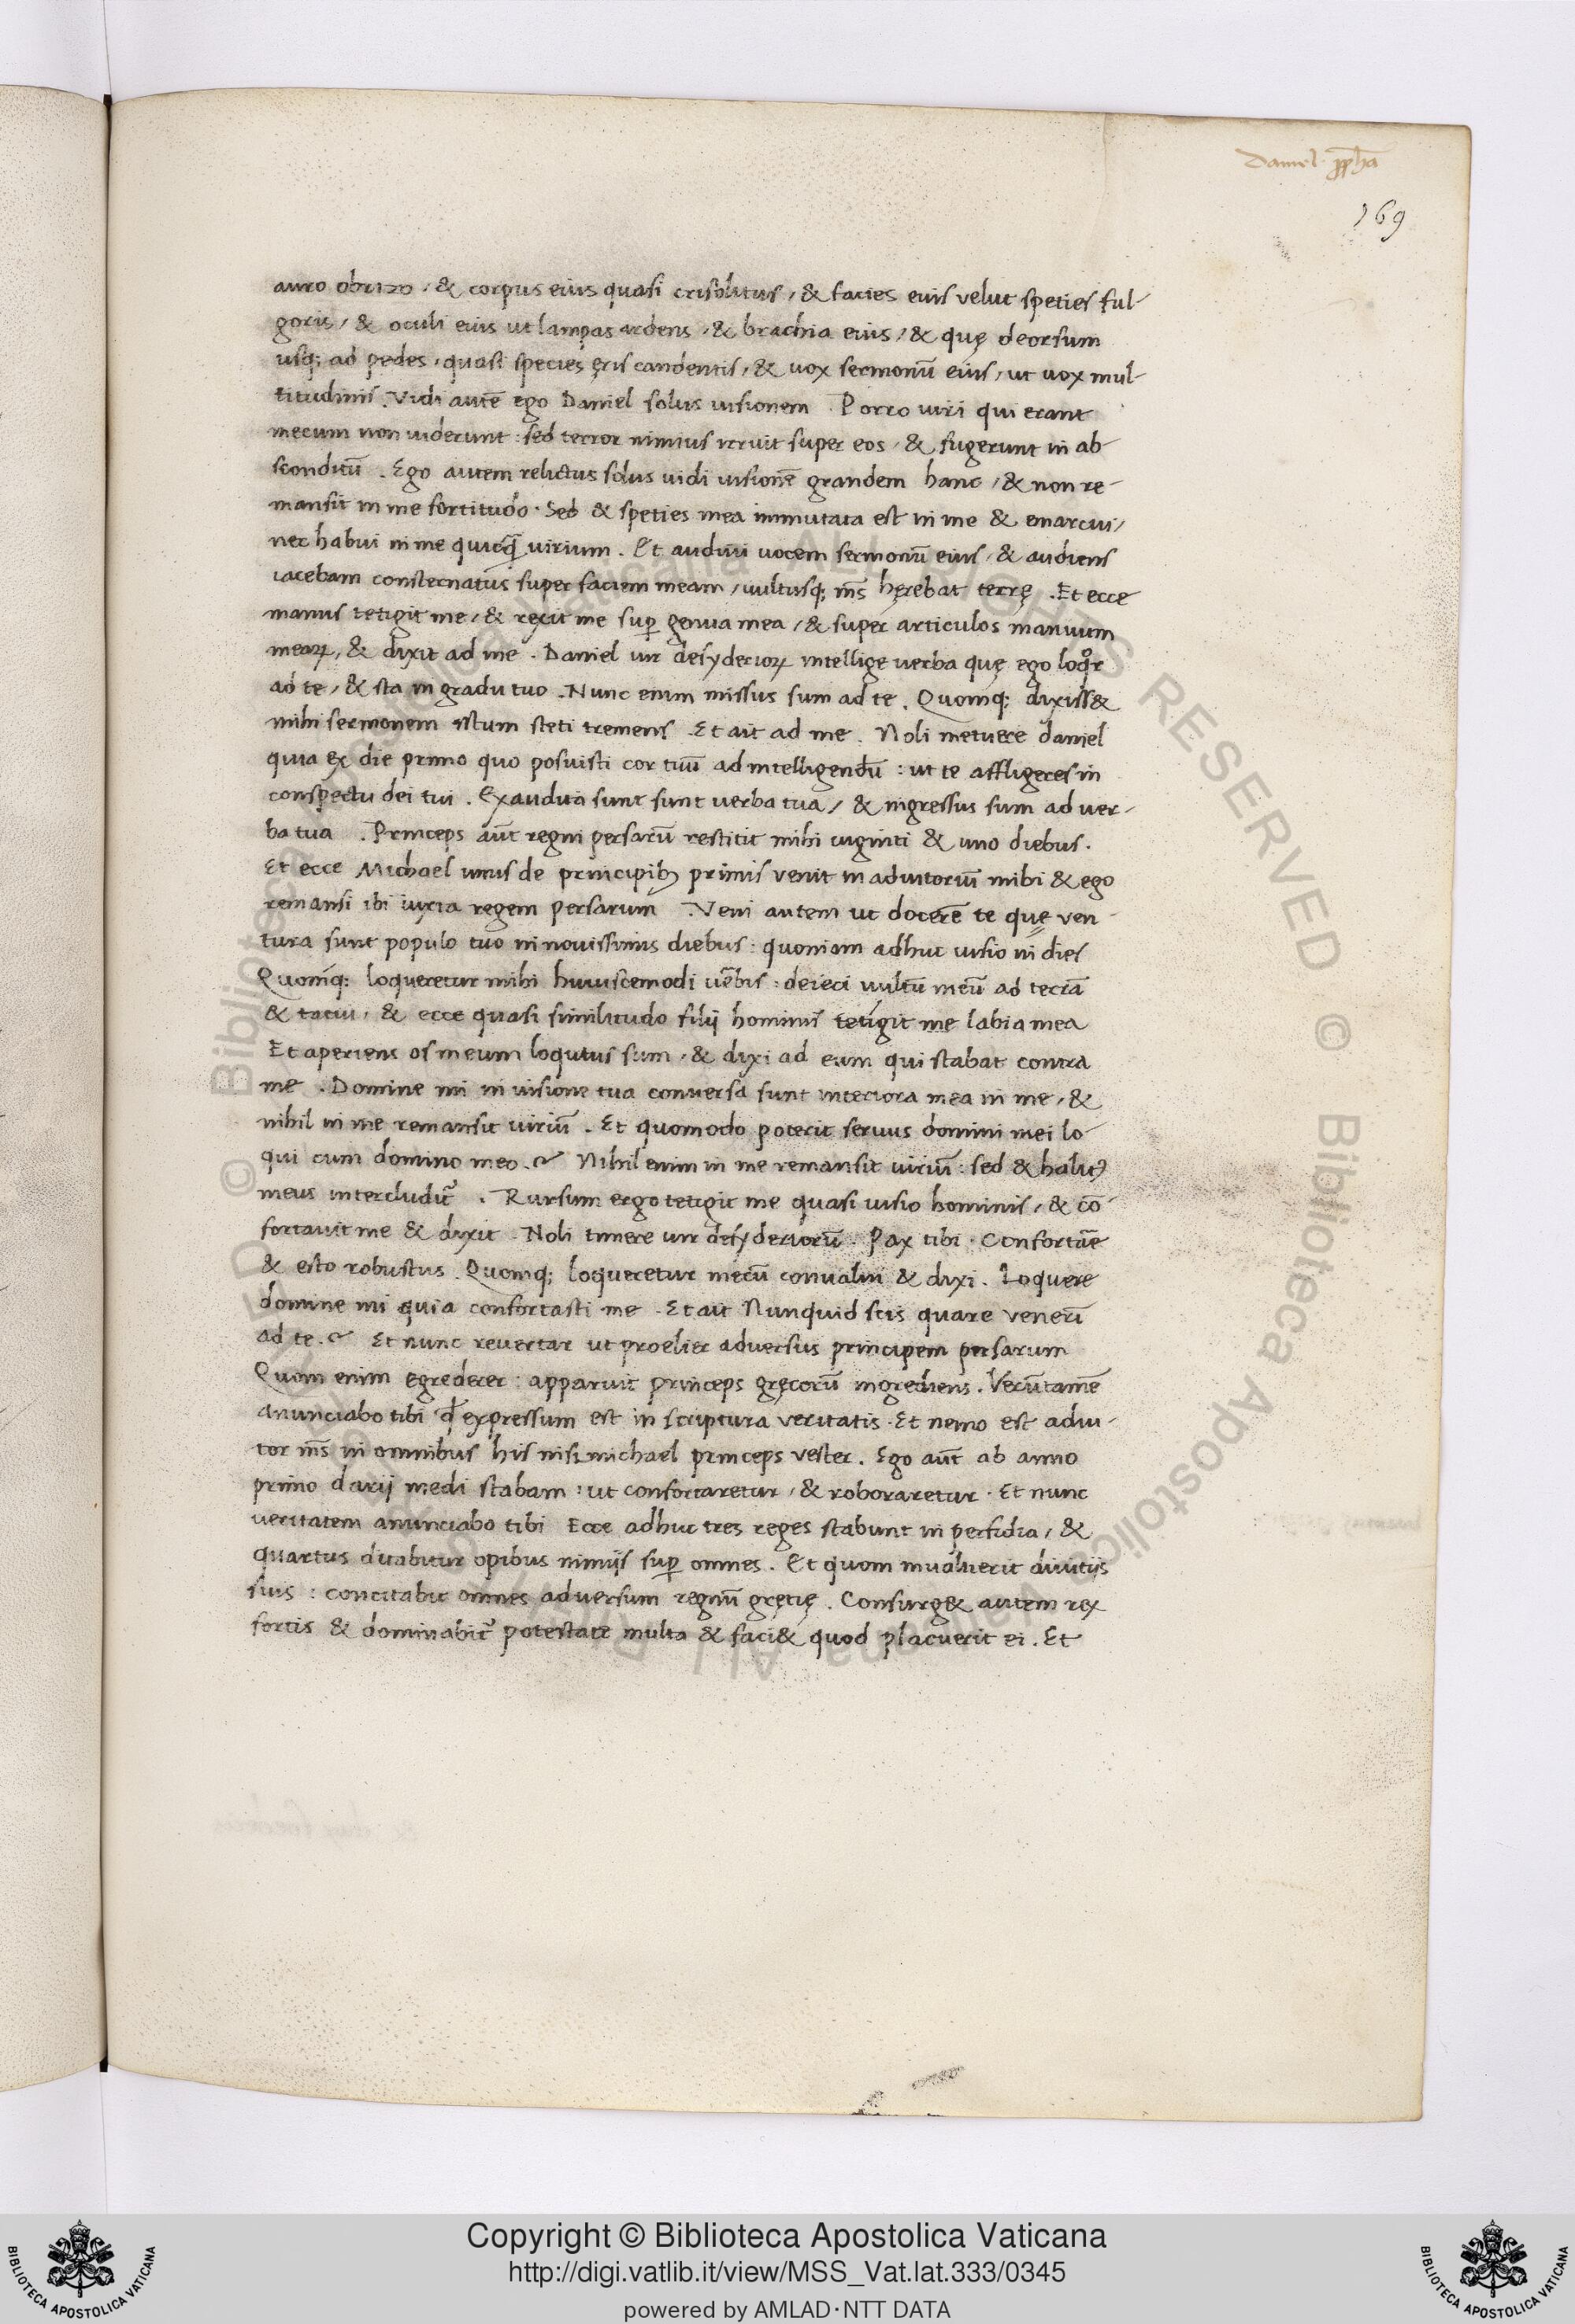 Daniel ꝓpha
169
auro obrizo / & corpus eius quasi crisolitus / & facies eius velut speties ful-
goris / & oculi eius ut lampas ardens / & brachia eius / & quę deorsum
usq; ad pedes / quasi species ęris candentis / & uox sermonū eius / ut uox mul-
titudinis . Vidi autē ego Daniel solus uisionem . Porro uiri qui erant
mecum non uiderunt : sed terror nimius irruit super eos / & fugerunt in ab
sconditū . Ego autem relictus solus uidi uisionē grandem hanc / & non re-
mansit in me fortitudo . Sed & speties mea immutata est in me & emarcui /
nec habui in me quicq̄ virium . Et audiui uocem sermonū eius / & audiens
iacebam consternatus super faciem meam / uultusq; ms̄ hęrebat terrę . Et ecce
manus tetigit me / & rexit me suꝑ genua mea / & super articulos manuum
meaꝝ / & dixit ad me . Daniel uir desyderioꝝ intellige verba quę ego loqͦr
ad te / & sta in gradu tuo . Nunc enim missus sum ad te . Quomq; dixiss&
mihi sermonem istum steti tremens . Et ait ad me . Noli metuere daniel
quia ex die primo quo posuisti cor tuū ad intelligendū : ut te affligeres in
conspectu dei tui . Exaudita sunt sunt verba tua / & ingressus sum ad ver-
ba tua . Princeps aūt regni persarū restitit mihi uiginti & uno diebus .
Et ecce Michael unus de principibꝰ primis venit in adiutoriū mihi & ego
remansi ibi iuxta regem persarum . Veni autem ut docerē te quę ven-
tura sunt populo tuo in nouissimis diebus : quoniam adhuc uisio in dies
Quomq; loqueretur mihi huiuscemodi ūbis : deieci uultū meū ad terrā
& tacui / & ecce quasi similitudo filij hominis tetigit me labia mea
Et aperiens os meum loqutus sum / & dixi ad eum qui stabat contra
me . Domine mi in uisione tua conversa sunt interiora mea in me / &
nihil in me remansit uiriū . Et quomodo poterit servus domini mei lo-
qui cum domino meo . Nihil enim in me remansit uiriū : sed & halitꝰ
meus intercludit᷑ . Rursum ergo tetigit me quasi uisio hominis / & cō-
fortauit me & dixit . Noli timere uir desyderiorū . Pax tibi . Confortāe
& esto robustus . Quomq; loqueretur mecū conualui & dixi . Loquere
domine mi quia confortasti me . Et ait Nunquid scis quare venerī
ad te . Et nunc revertar ut proelier adversus principem persarum
Quom enim egrederer : apparuit princeps gręcorū ingrediens . Verūtamē
anunciabo tibi qd̄ expressum est in scriptura veritatis . Et nemo est adiu-
tor ms̄ in omnibus his nisi michael princeps vester . Ego aūt ab anno
primo darij medi stabam : ut confortaretur / & roboraretur . Et nunc
veritatem anunciabo tibi Ecce adhuc tres reges stabunt in perfidia / &
quartus ditabitur opibus nimijs suꝑ omnes . Et quom inualuerit diuitijs
suis : concitabit omnes adversum regnū gręcię . Consurg& autem rex
fortis & dominabit᷑ potestate multa & faci& quod placuerit ei . Et
Copyright © Biblioteca Apostolica Vaticana
http://digi.vatlib.it/view/MSS_Vat.lat.333/0345
powered by AMLAD·NTT DATA
BIBLIOTECA APOSTOLICA VATICANA
BIBLIOTECA APOSTOLICA VATICANA